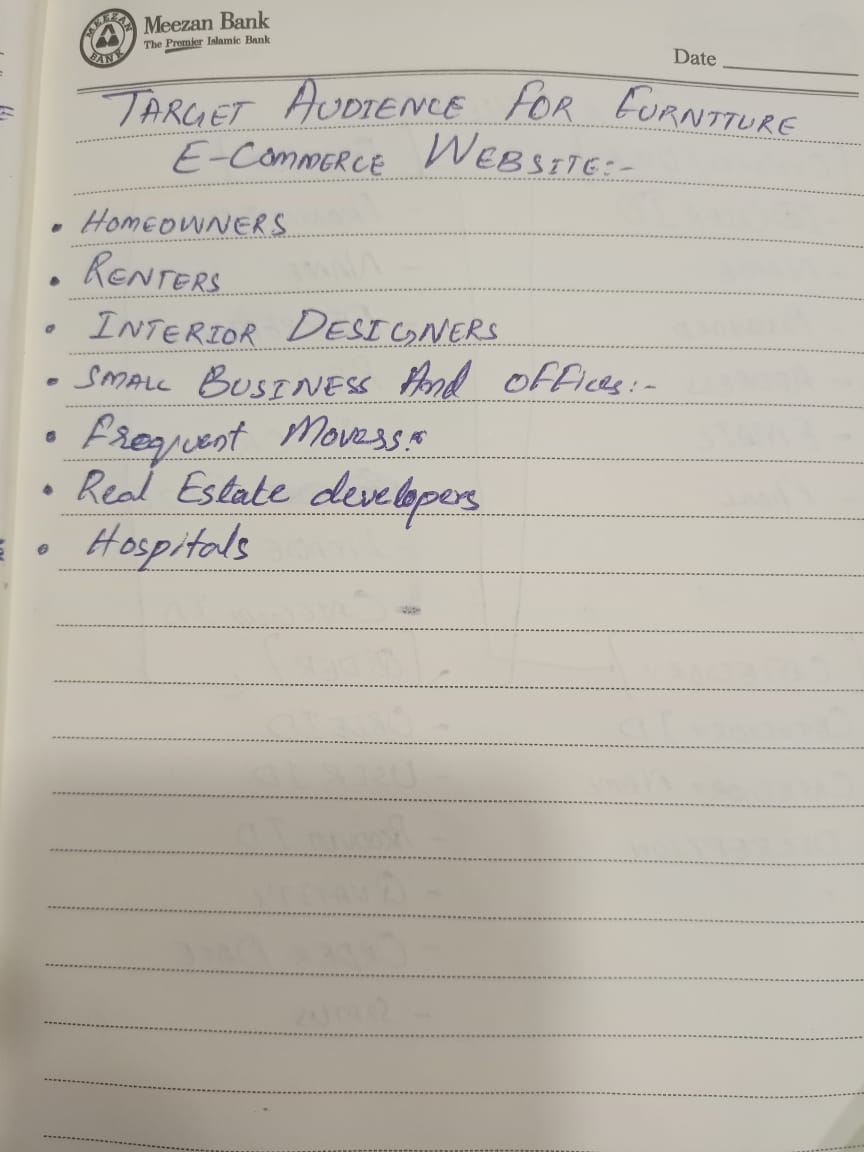 MEEZAN BANK
Meezan Bank
The Premier Islamic Bank
Date
TARGET AUDIENCE FOR FURNITURE
E-COMMERCE WEBSITE:-
• HOMEOWNERS
• RENTERS
• INTERIOR DESIGNERS
• SMALL BUSINESS And Offices:-
• Frequent Movers:
• Real Estate developers
• Hospitals